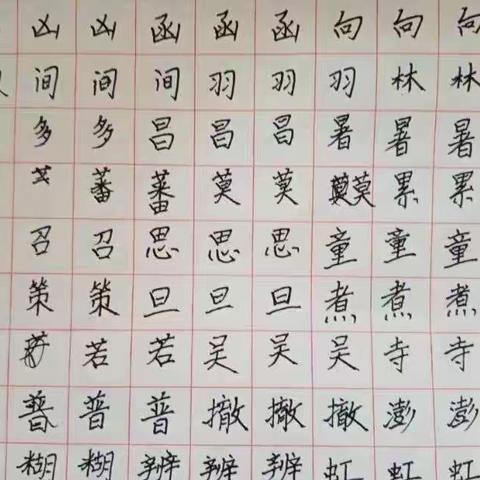 凶 凶 函 函 函 向 向 向
间 间 间 羽 羽 羽 林 林
多 多 昌 昌 昌 暑 暑 暑
蕃 蕃 莫 莫 莫 累 累
召 召 思 思 思 童 童 童
策 策 旦 旦 旦 煮 煮 煮
若 若 吴 吴 吴 寺 寺
普 普 普 撤 撤 撤 澎 澎
糊 糊 辨 辨 辨 虹 虹 虹